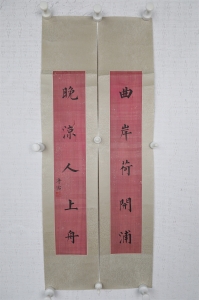 曲岸荷開浦
晚涼人上舟